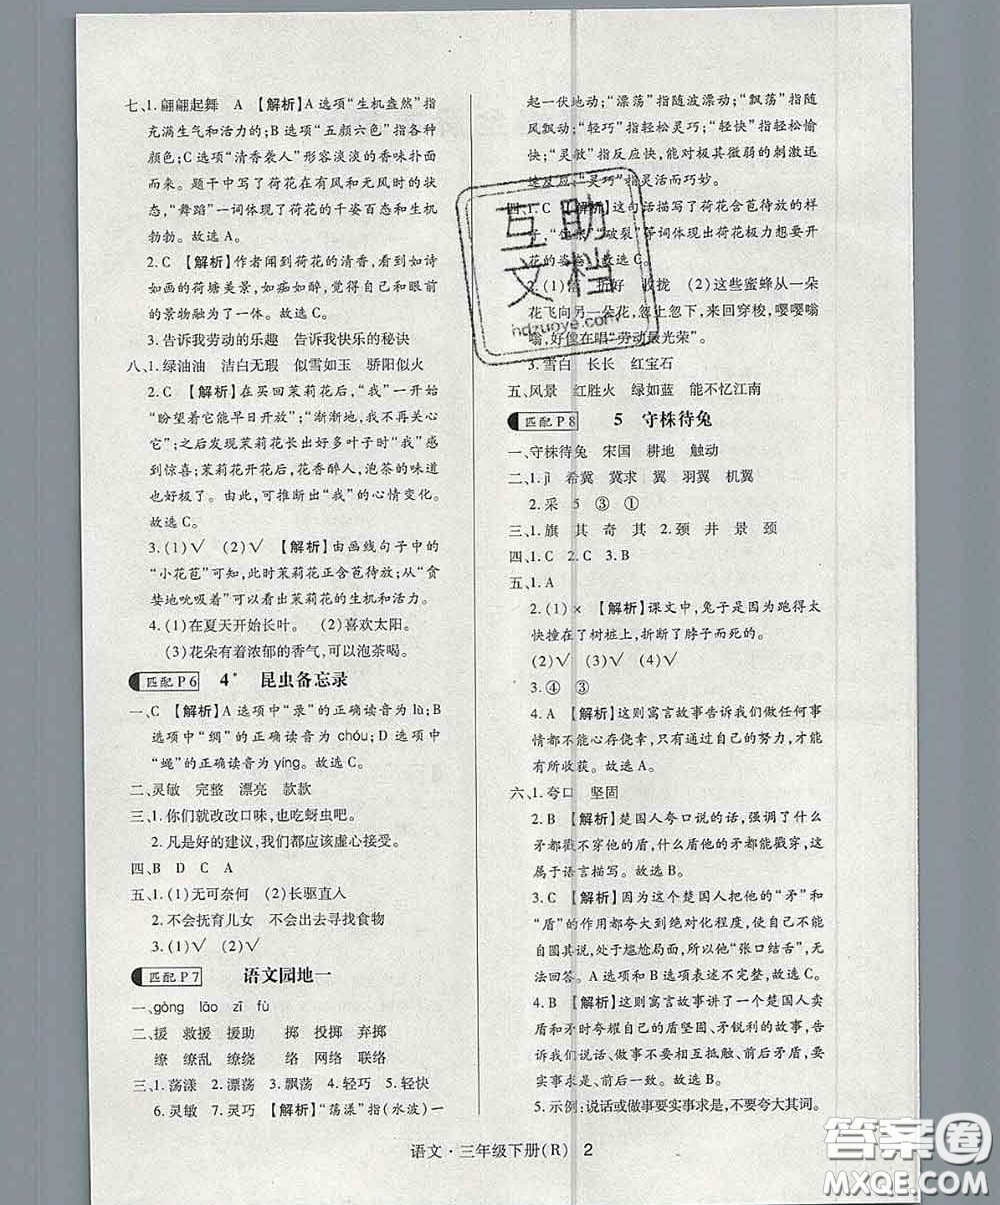 七、1.翩翩起舞 A 【解析】A选项“生机盎然”指
充满生气和活力的;B选项“五颜六色”指各种
颜色;C选项“清香袭人”形容淡淡的香味扑面
而来。题干中写了荷花在有风和无风时的状
态,“舞蹈”一词体现了荷花的千姿百态和生机
勃勃。故选A。
2.C 【解析】作者闻到荷花的清香,看到如诗
如画的荷塘美景,如痴如醉,感觉自己和眼前
的景物融为了一体。故选C。
3.告诉我劳动的乐趣 告诉我快乐的秘诀
八、1.绿油油 洁白无瑕 似雪如玉 骄阳似火
2.C 【解析】在买回茉莉花后,“我”一开始
“盼望着它能早日开放”;“渐渐地,我不再关心
它”;之后发现茉莉花长出许多叶子时“我”感
到惊喜;茉莉花开花后,花香醉人,泡茶的味道
也好极了。由此,可推断出“我”的心情变化。
故选C。
3.(1)√ (2)√ 【解析】由画线句子中的
“小花苞”可知,此时茉莉花正含苞待放;从“贪
婪地吮吸着”可以看出茉莉花的生机和活力。
4.(1)在夏天开始长叶。 (2)喜欢太阳。
(3)花朵有着浓郁的香气,可以泡茶喝。
匹配P6 4* 昆虫备忘录
一、C 【解析】A选项中“录”的正确读音为lù;B
选项中“绸”的正确读音为chóu;D选项中
“蝇”的正确读音为yíng。故选C。
二、灵敏 完整 漂亮 款款
三、1.你们就改改口味,也吃蚜虫吧。
2.凡是好的建议,我们都应该虚心接受。
四、B D C A
五、1.(1)无可奈何 (2)长驱直入
2.不会抚育儿女 不会出去寻找食物
3.(1)√ (2)√
匹配P7 语文园地一
一、gòng lāo zǐ fù
二、援 救援 援助 掷 投掷 弃掷
缭 缭乱 缭绕 络 网络 联络
三、1.荡漾 2.漂荡 3.飘荡 4.轻巧 5.轻快
6.灵敏 7.灵巧 【解析】“荡漾”指(水波)一
起一伏地动;“漂荡”指随波漂动;“飘荡”指随
风飘动;“轻巧”指轻松灵巧;“轻快”指轻松愉
快;“灵敏”指反应快,能对极其微弱的刺激迅
速反应;“灵巧”指灵活而巧妙。
四、1.C 【解析】这句话描写了荷花含苞待放的样
子,“饱胀”“破裂”等词体现出荷花极力想要开
放的姿态。故选C。
2.(1) 折好 收拢 (2)这些蜜蜂从一朵
花飞向另一朵花,忽上忽下,来回穿梭,嘤嘤嗡
嗡,好像在唱“劳动最光荣”。
3.雪白 长长 红宝石
五、风景 红胜火 绿如蓝 能不忆江南
匹配P8 5 守株待兔
一、守株待兔 宋国 耕地 触动
二、1.jì 希冀 冀求 翼 羽翼 机翼
2.采 5 ③ ①
三、1.旗 其 奇 其 2.颈 井 景 颈
四、1.C 2.C 3.B
五、1.A
2.(1)× 【解析】课文中,兔子是因为跑得太
快撞在了树桩上,折断了脖子而死的。
(2)√ (3)√ (4)√
3.④ ③ ①
4.A 【解析】这则寓言故事告诉我们做任何事
情都不能心存侥幸,只有通过自己的努力,才能
有所收获。故选A。
六、1.夸口 坚固
2.B 【解析】楚国人夸口说的话,强调了什么
矛都戳不穿他的盾,什么盾他的矛都能戳穿,这
属于语言描写。故选B。
3.C 【解析】因为这个楚国人把他的“矛”和
“盾”的作用都夸大到绝对化程度,使自己不能
自圆其说,处于尴尬局面,所以他“张口结舌”,无
法回答。A选项和B选项与文意不符。故选C。
4.B 【解析】这则寓言故事讲了一个楚国人卖
盾和矛时夸耀自己的盾坚固、矛锐利的故事,告
诉我们说话、做事不要不相抵触、前后矛盾,要
实事求是、前后一致。故选B。
5.示例:说话或做事要实事求是,不要夸大其词。
语文·三年级下册(R) 2
互助
文档
hdzuoye.com
答案圈
MXQE.COM